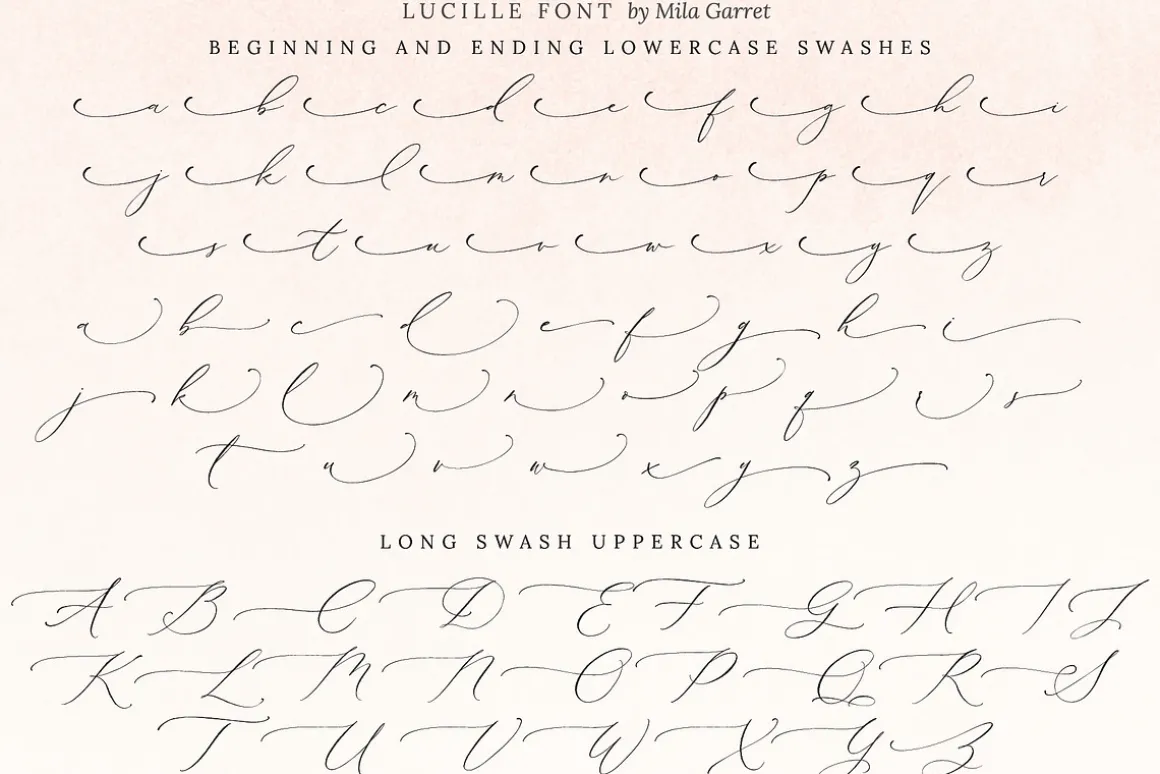 LUCILLE FONT by Mila Garret
BEGINNING AND ENDING LOWERCASE SWASHES
a b c d e f g h i
j k l m n o p q r
s t u v w x y z
a b c d e f g h i
j k l m n o p q r s
t u v w x y z
LONG SWASH UPPERCASE
A B C D E F G H I J
K L M N O P Q R S
T U V W X Y Z